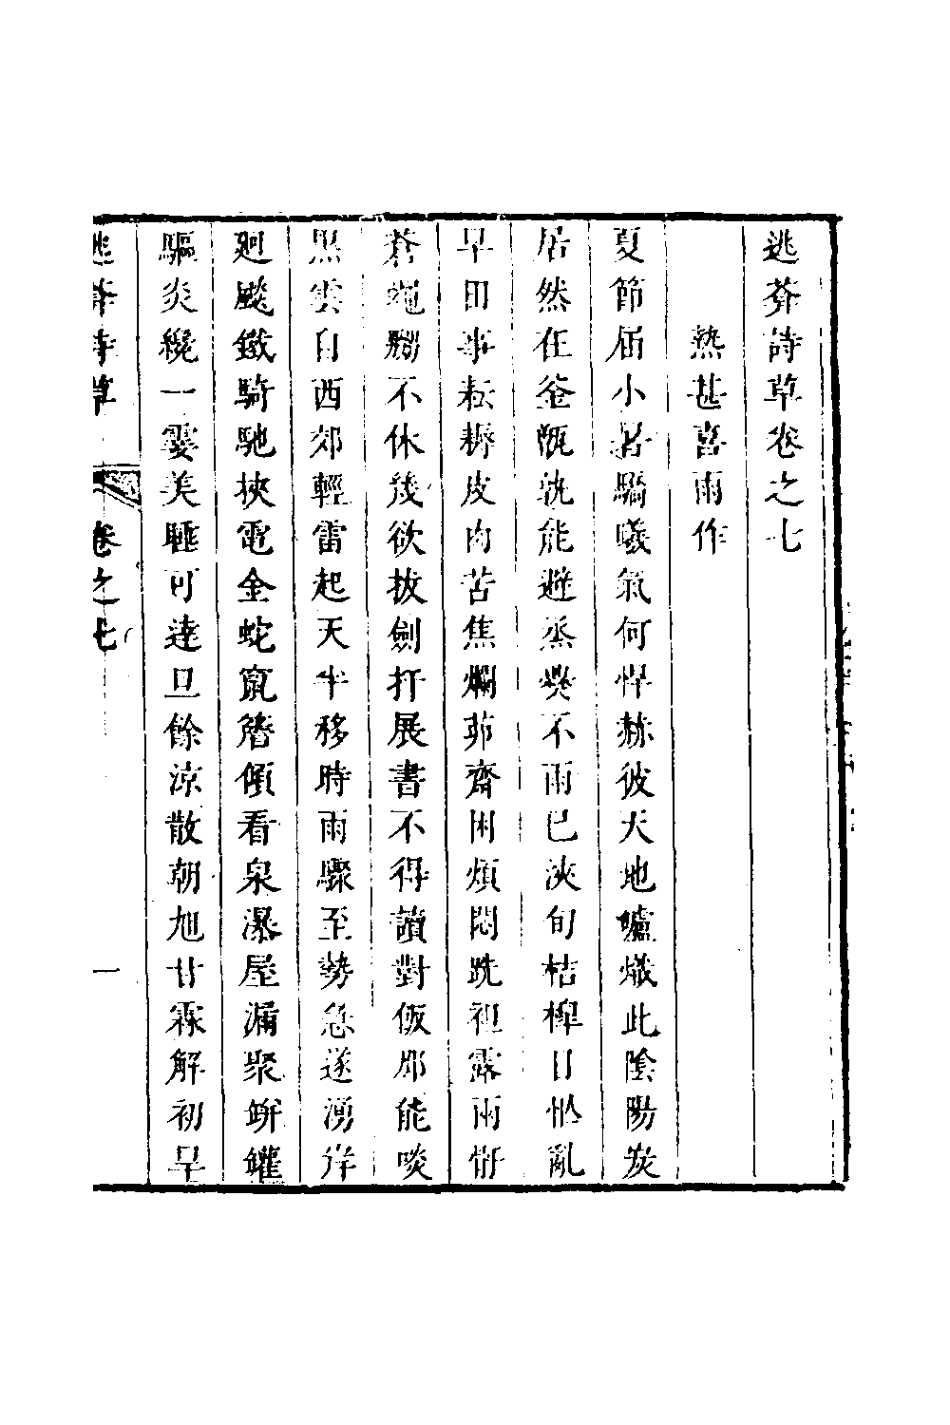 逃葊詩草卷之七
熱甚喜雨作
夏節届小暑驕曦氣何悍赫彼天地爐熾此陰陽炭
居然在釜甑孰能避烝爨不雨已浹旬桔槔日忙亂
早田事耘耨皮肉苦焦爛茆齋困煩悶跣袒露兩骭
蒼蠅嬲不休後欲拔劍扞展書不得讀對飯那能啖
黑雲自西郊輕雷起天半移時雨驟至勢急遂湧岸
廻飈鐵騎馳挾電金蛇竄簷傾看泉瀑屋漏聚缾罐
驅炎纔一霎美睡可達旦餘涼散朝旭甘霖解初旱
逃葊詩草 卷之七 一